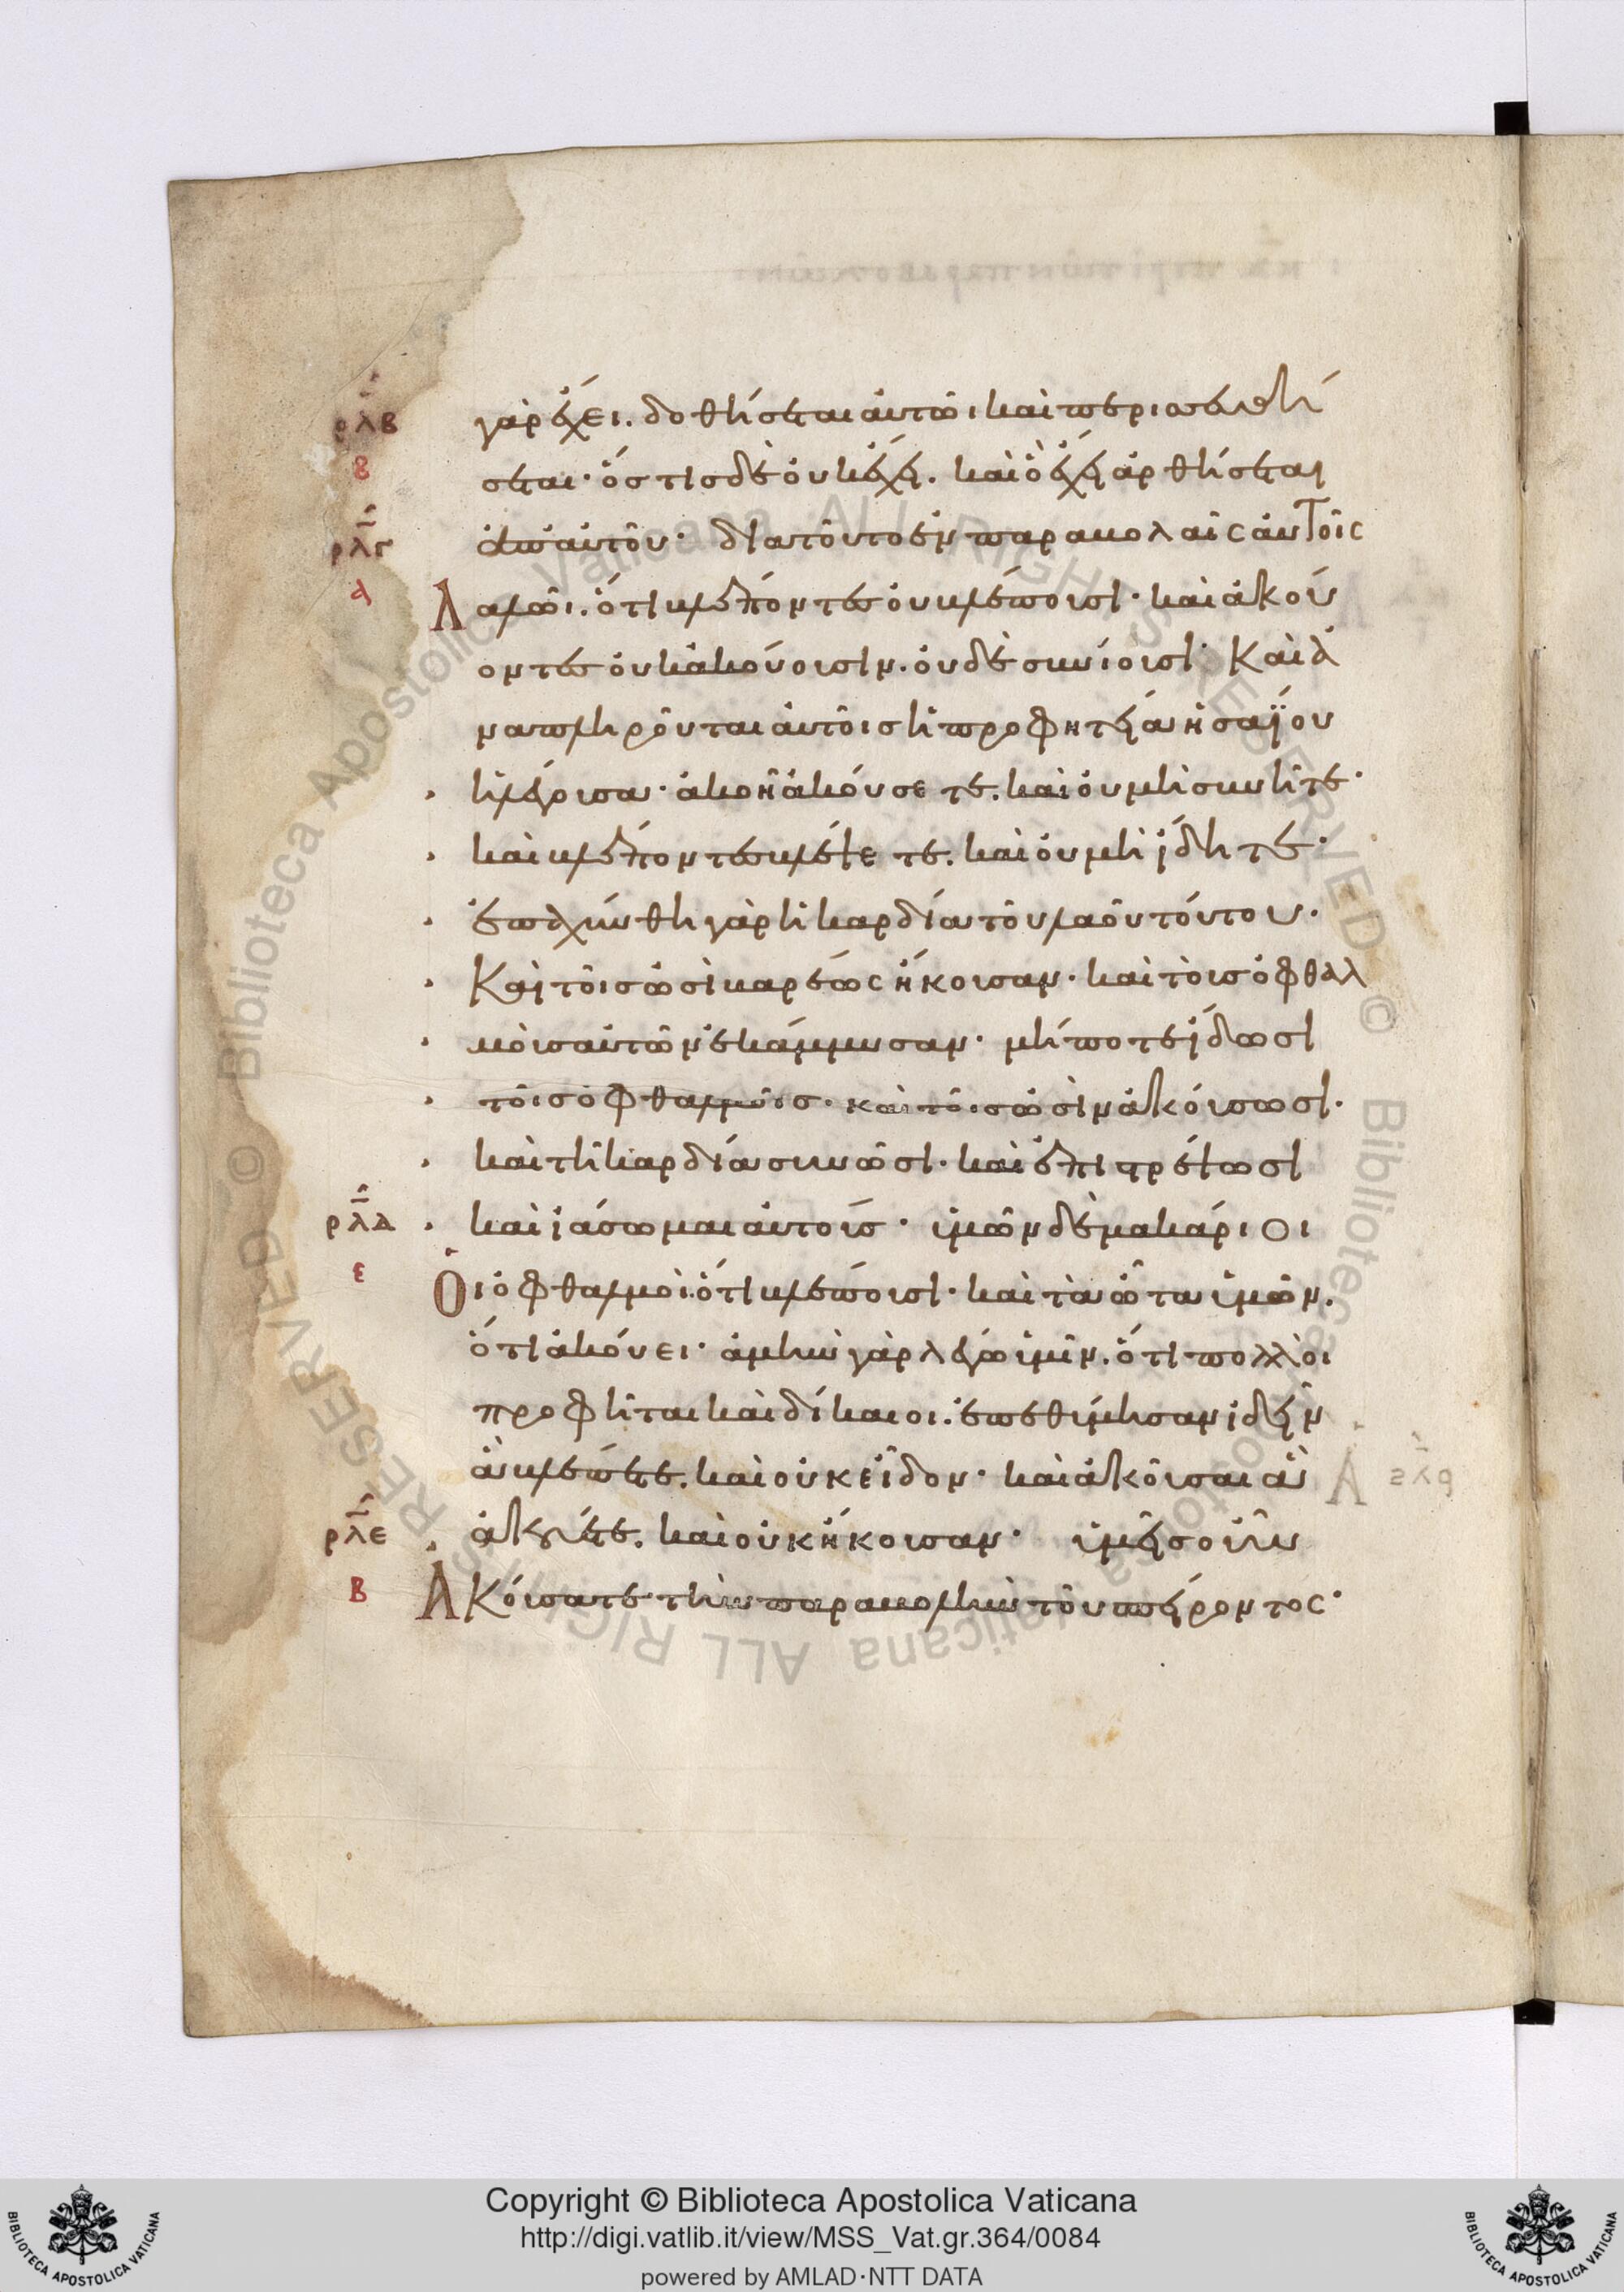 ρλβ γὰρ ἔχει. δοθήσεται αὐτῶι καὶ περισσευθή
β σεται· ὅστις δὲ οὐκ ἔχει. καὶ ὃ ἔχει ἀρθήσεται
ρλγ ἀπ' αὐτοῦ· διατοῦτο ἐν παραβολαῖς αὐτοῖς
α Λαλῶ. ὅτι βλέποντες οὐ βλέπουσι· καὶ ἀκού
οντες οὐκ ἀκούουσιν. οὐδὲ συνίουσι· Καὶ ἀ
ναπληροῦται αὐτοῖς ἡ προφητεία ἡσαΐου
ἡ λέγουσα· ἀκοῆ ἀκούσετε. καὶ οὐ μὴ συνῆτε·
καὶ βλέποντες βλέψετε. καὶ οὐ μὴ ἴδητε·
ἐπαχύνθη γὰρ ἡ καρδία τοῦ λαοῦ τούτου·
Καὶ τοῖς ὠσὶ βαρέως ἤκουσαν· καὶ τοὺς ὀφθαλ
μοὺς αὐτῶν ἐκάμμυσαν· μήποτε ἴδωσι
τοῖς ὀφθαλμοῖς· καὶ τοῖς ὠσὶν ἀκούσωσι·
καὶ τῆ καρδία συνῶσι· καὶ ἐπιστρέψωσι
ρλδ καὶ ἰάσωμαι αὐτούς· ὑμῶν δὲ μακάριοι
ε Οἱ ὀφθαλμοὶ. ὅτι βλέπουσι· καὶ τὰ ὦτα ὑμῶν.
ὅτι ἀκούει· ἀμὴν γὰρ λέγω ὑμῖν. ὅτι πολλοὶ
προφῆται καὶ δίκαιοι. ἐπεθύμησαν ἰδεῖν
ἃ βλέπετε. καὶ οὐκ εἶδον· καὶ ἀκοῦσαι ἃ
ρλε ἀκούετε. καὶ οὐκ ἤκουσαν· ὑμεῖς οὖν
β Ἀκούσατε τὴν παραβολὴν τοῦ σπείροντος·
Copyright © Biblioteca Apostolica Vaticana
http://digi.vatlib.it/view/MSS_Vat.gr.364/0084
powered by AMLAD·NTT DATA